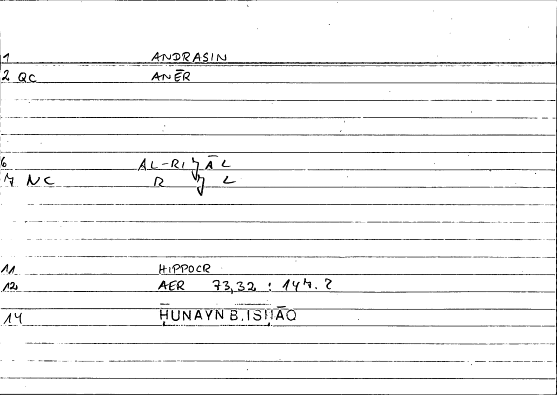 1 ANDRASIN
2 QC ANĒR
6 AL-RIǰĀL
7 NC R ǰ L
11 HIPPOCR
12 AER 73,32 : 147. 2
14 ḤUNAYN B. ISḤĀQ